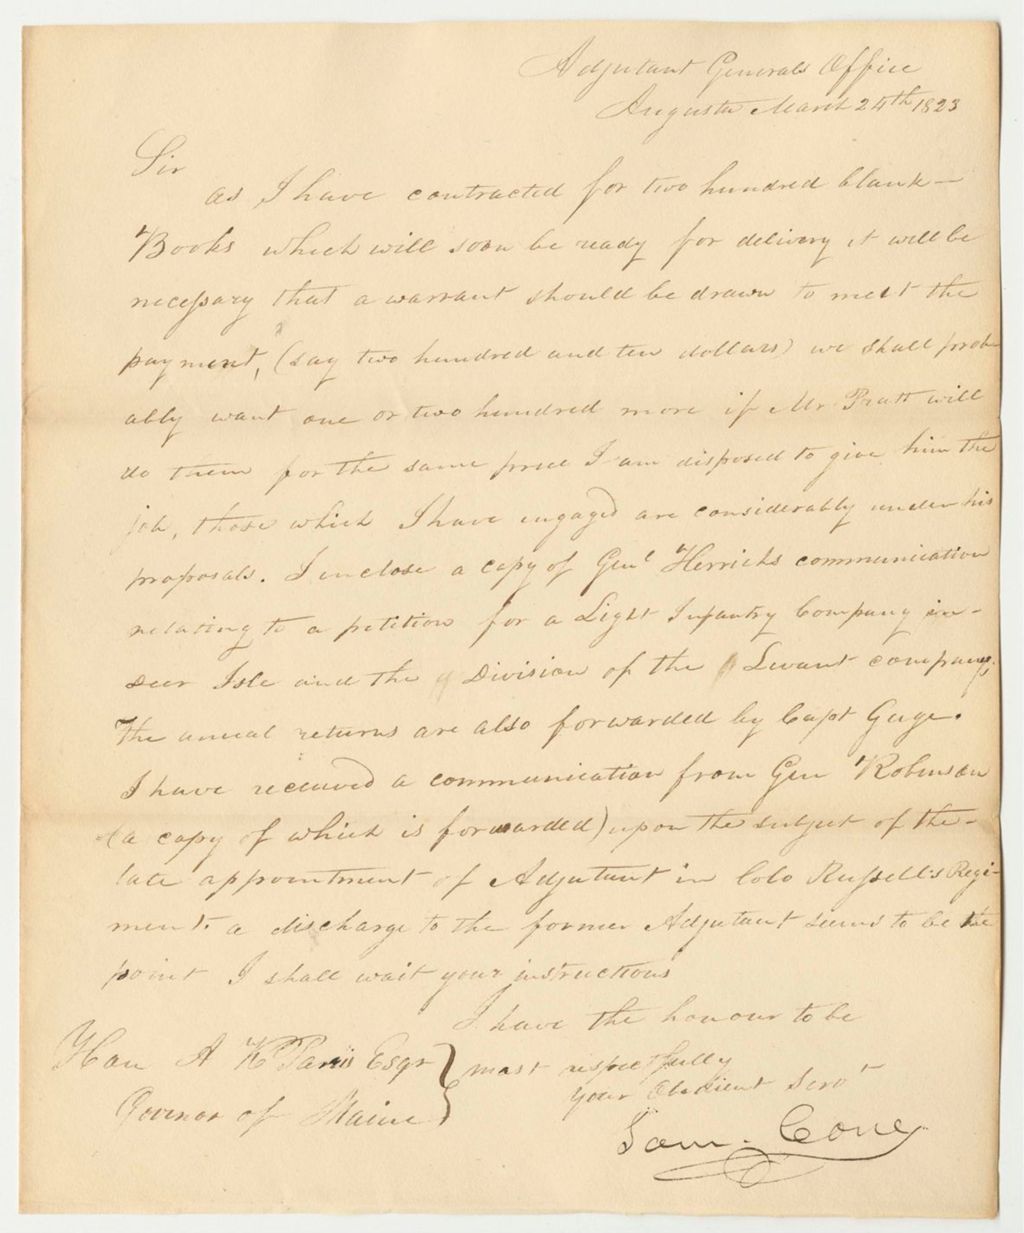 Adjutant Generals Office
Augusta March 24th 1823
Sir
as I have contracted for two hundred blank-
Books which will soon be ready for delivery it will be
necessary that a warrant should be drawn to meet the
payment, (say two hundred and ten dollars) we shall prob
ably want one or two hundred more if Mr Pratt will
do them for the same price I am disposed to give him the
job, those which I have engaged are considerably under his
proposals. I inclose a copy of Genl Herricks communication
relating to a petition for a Light Infantry Company in-
Deer Isle and the Division of the Levant company.
The annual returns are also forwarded by Capt Gage.
I have received a communication from Gen Robinson
(a copy of which is forwarded) upon the subject of the-
late appointment of Adjutant in Colo Russell's Regi-
ment. a discharge to the former Adjutant seems to be the
point I shall wait your instructions
I have the honour to be
most respectfully
your Obedient Servt
Sam. Cony
Hon A K Parris Esqr
Govenor of Maine